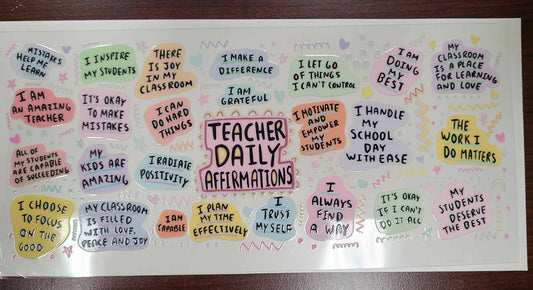 MISTAKES
HELP ME
LEARN
I INSPIRE
MY STUDENTS
THERE
IS JOY
IN MY
CLASSROOM
I MAKE A
DIFFERENCE
I LET GO
OF THINGS
I CAN'T CONTROL
I AM
DOING
MY
BEST
MY
CLASSROOM
IS A PLACE
FOR LEARNING
AND LOVE
I AM
AN AMAZING
TEACHER
IT'S OKAY
TO MAKE
MISTAKES
I CAN
DO HARD
THINGS
I AM
GRATEFUL
TEACHER
DAILY
AFFIRMATIONS
I MOTIVATE
AND
EMPOWER
MY
STUDENTS
I HANDLE
MY
SCHOOL
DAY
WITH EASE
THE
WORK I
DO MATTERS
ALL OF
MY STUDENTS
ARE CAPABLE
OF SUCCEEDING
MY
KIDS ARE
AMAZING
I RADIATE
POSITIVITY
I CHOOSE
TO FOCUS
ON THE
GOOD
MY CLASSROOM
IS FILLED
WITH LOVE,
PEACE AND JOY
I AM
CAPABLE
I PLAN
MY TIME
EFFECTIVELY
I
TRUST
MYSELF
I
ALWAYS
FIND
A
WAY
IT'S OKAY
IF I CAN'T
DO IT ALL
MY
STUDENTS
DESERVE
THE BEST